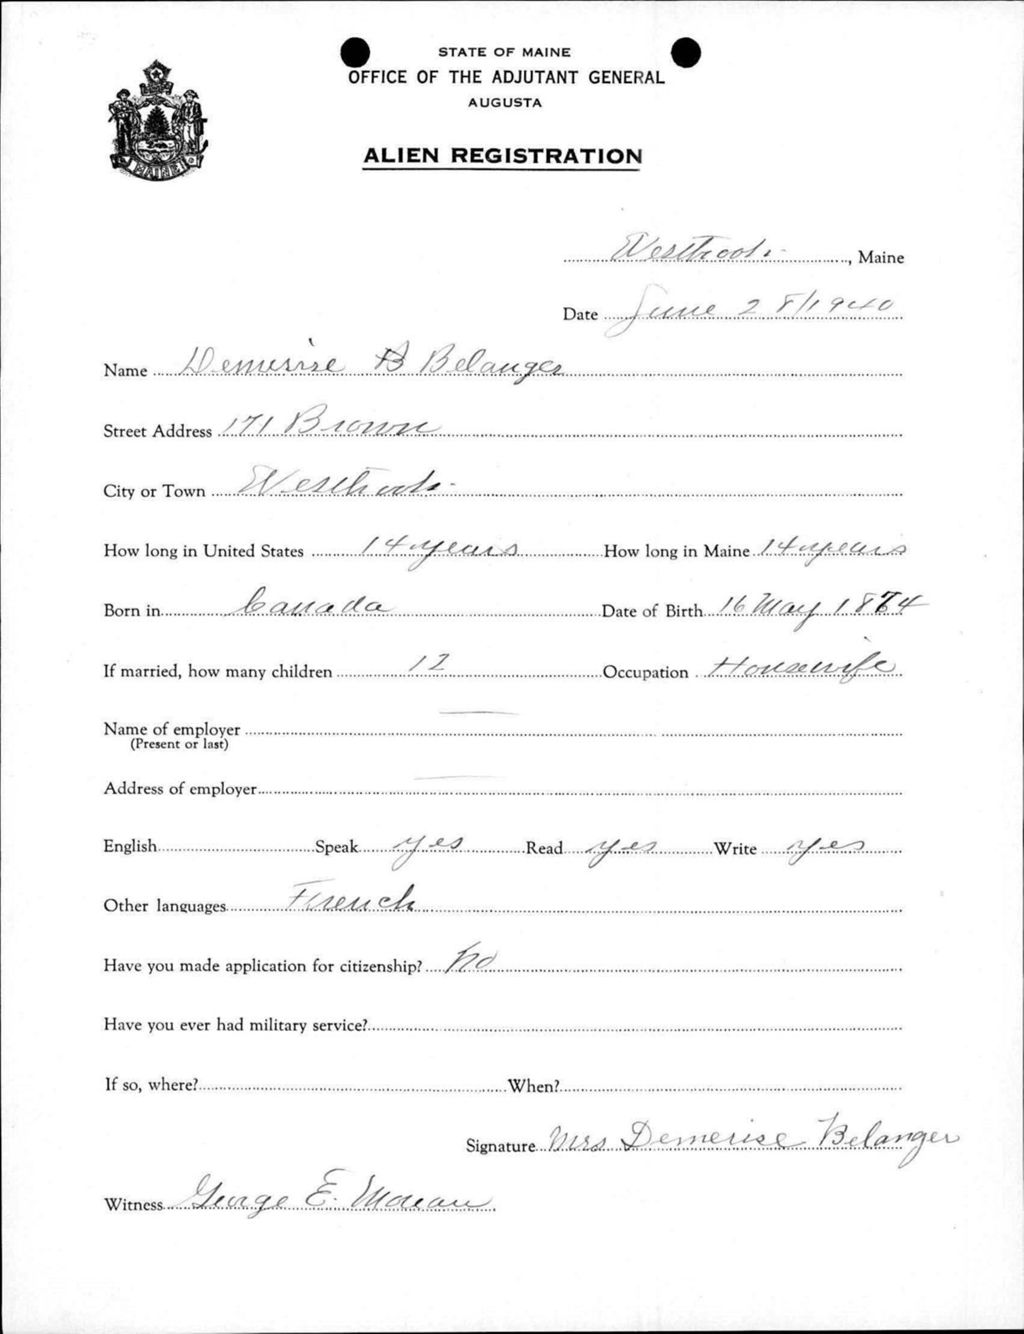 STATE OF MAINE
OFFICE OF THE ADJUTANT GENERAL
AUGUSTA
ALIEN REGISTRATION
MAINE
Westbrook, Maine
Date June 28/1940
Name Demerise B Belanger
Street Address 171 Brown
City or Town Westbrook
How long in United States 14 years How long in Maine 14 years
Born in Canada Date of Birth 16 May 1874
If married, how many children 12 Occupation Housewife
Name of employer
(Present or last)
Address of employer
English Speak yes Read yes Write yes
Other languages French
Have you made application for citizenship? No
Have you ever had military service?
If so, where? When?
Signature Mrs Demerise Belanger
Witness George E. Moreau